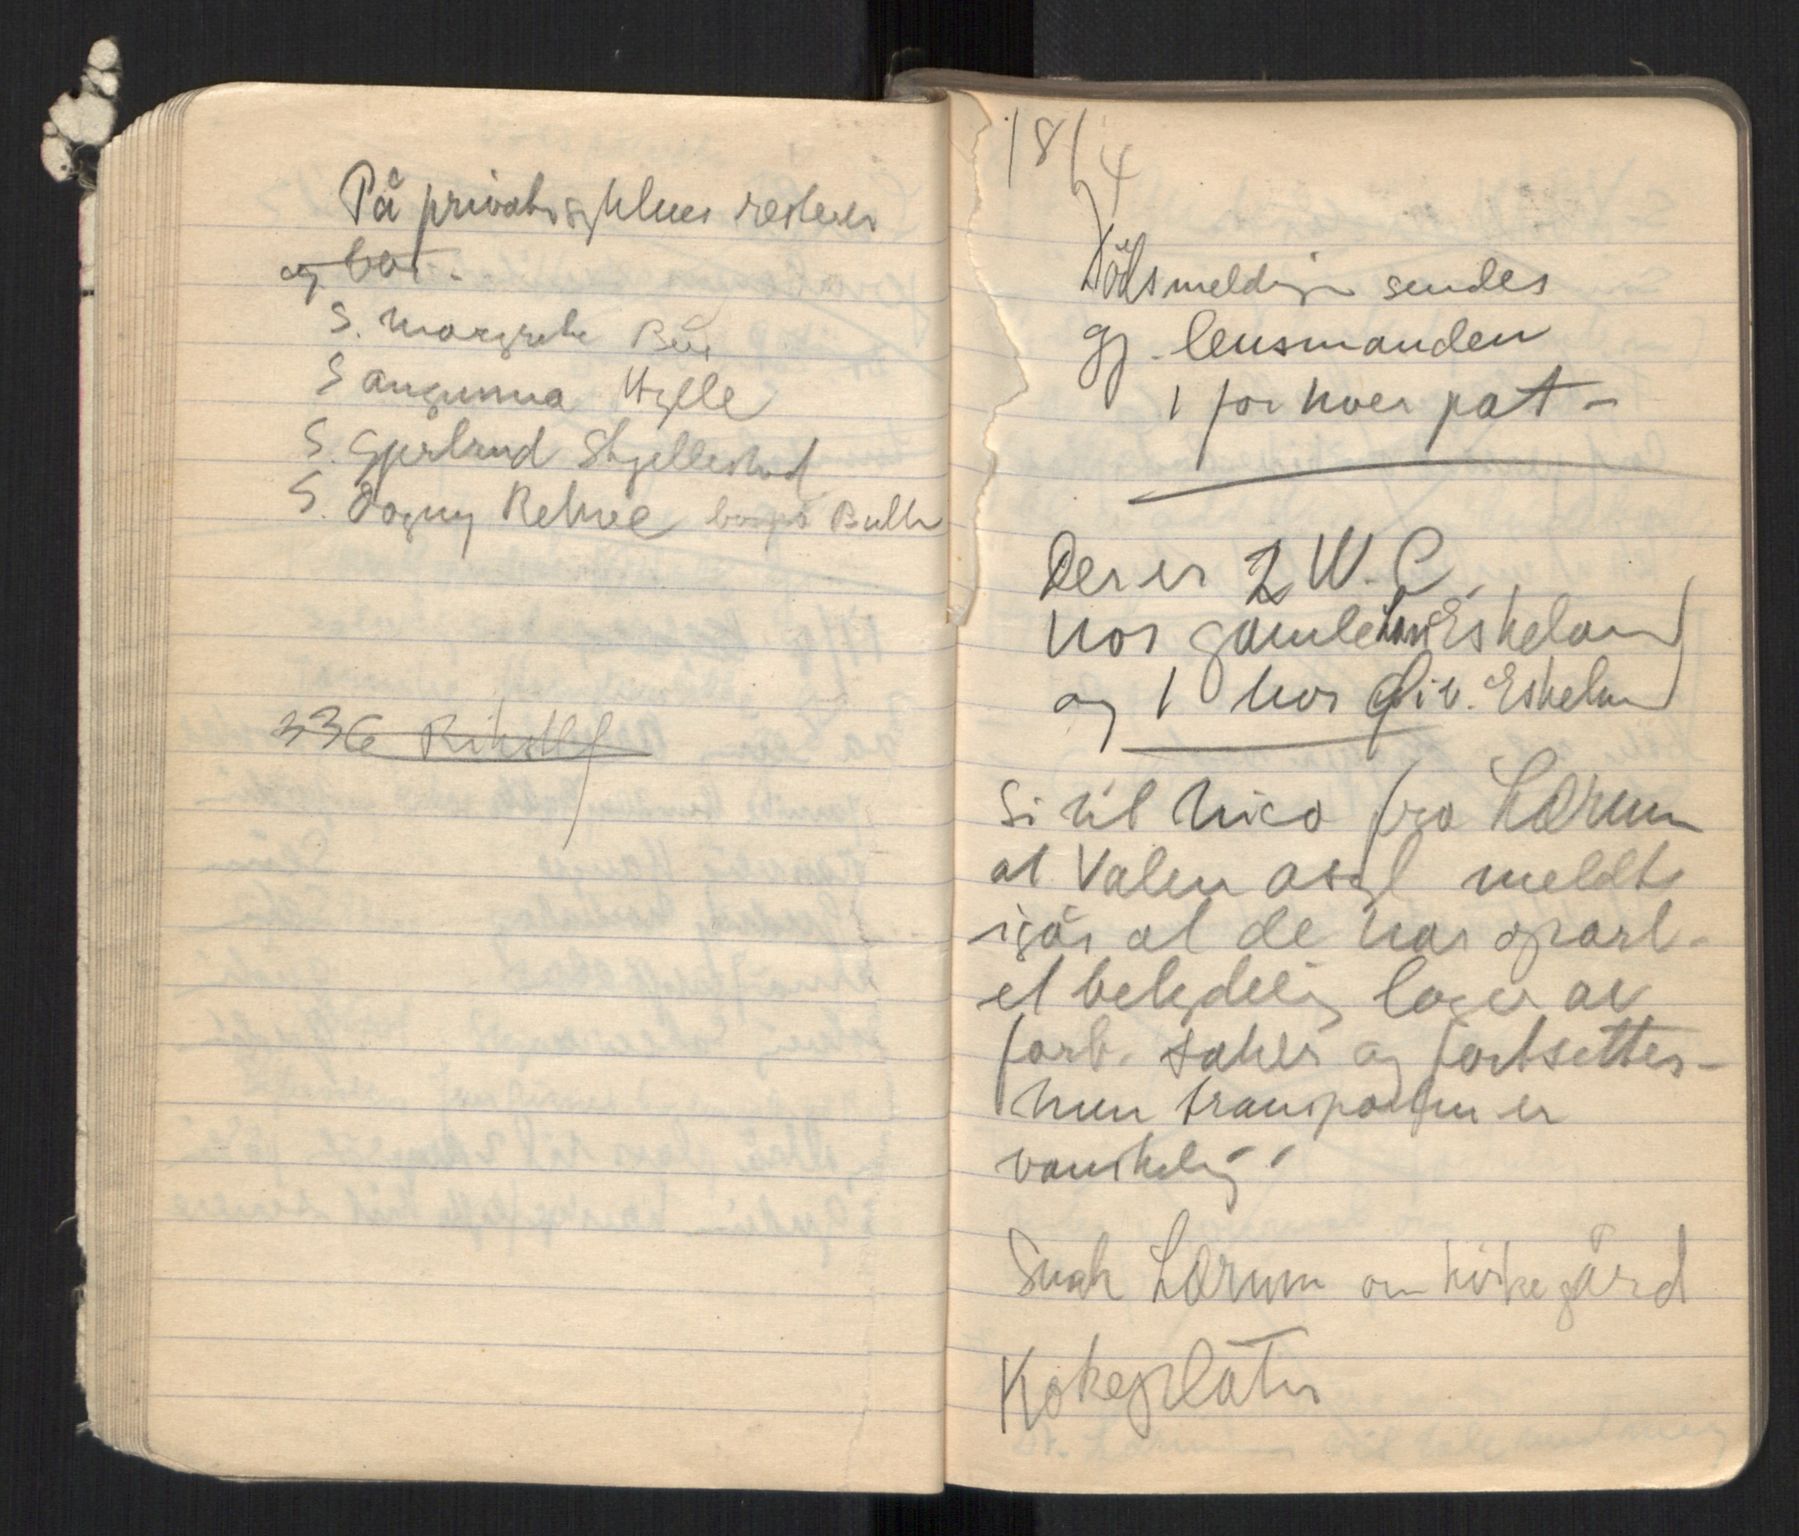 På privatsykehus resterer
og bår.
S. Margrethe Bøe
S Angunna Hylle
S. Gjertrud Skjellestad
S. Dagny Rekve Bulken
336 Rikstlf
18/4
Dødsmeldinger sendes
gj. lensmanden
1 for hver pat -
Der er 2 W.C.
hos gamle Lars Eskeland
og 1 hos Eskeland
Si til Nico fra Lærum
at Valen asyl meldte
igår at de har opart.
et betydelig lager av
forb. saker og fortsetter -
men transporten er
vanskelig.
Snak Lærum om
Kokeplater